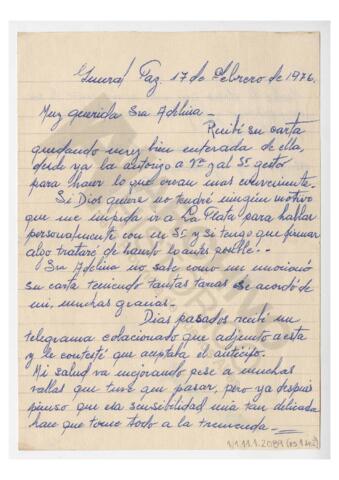 General Paz, 17 de Febrero de 1976.
Muy querida Sra Adelina. -
Recibí su carta
quedando muy bien enterada de ella,
desde ya la autorizo a Vd y al Sr gestor
para hacer lo que crean mas conveniente. -
Si Dios quiere no tendré ningún motivo
que me impida ir a La Plata para hablar
personalmente con un Sr y si tengo que firmar
algo trataré de hacerlo cuanto antes posible. -
Sra Adelina no sabe como me emocionó
su carta teniendo tantas tareas se acordó de
mi, muchas gracias. -
Dias pasados recibi un
telegrama colacionado que adjunto a esta
y le contesté que aceptaba el anticipo.
Mi salud va mejorando pese a muchas
vallas que tuve que pasar, pero ya después
pienso que esa sensibilidad mia tan delicada
hace que tome todo a la tremenda. -